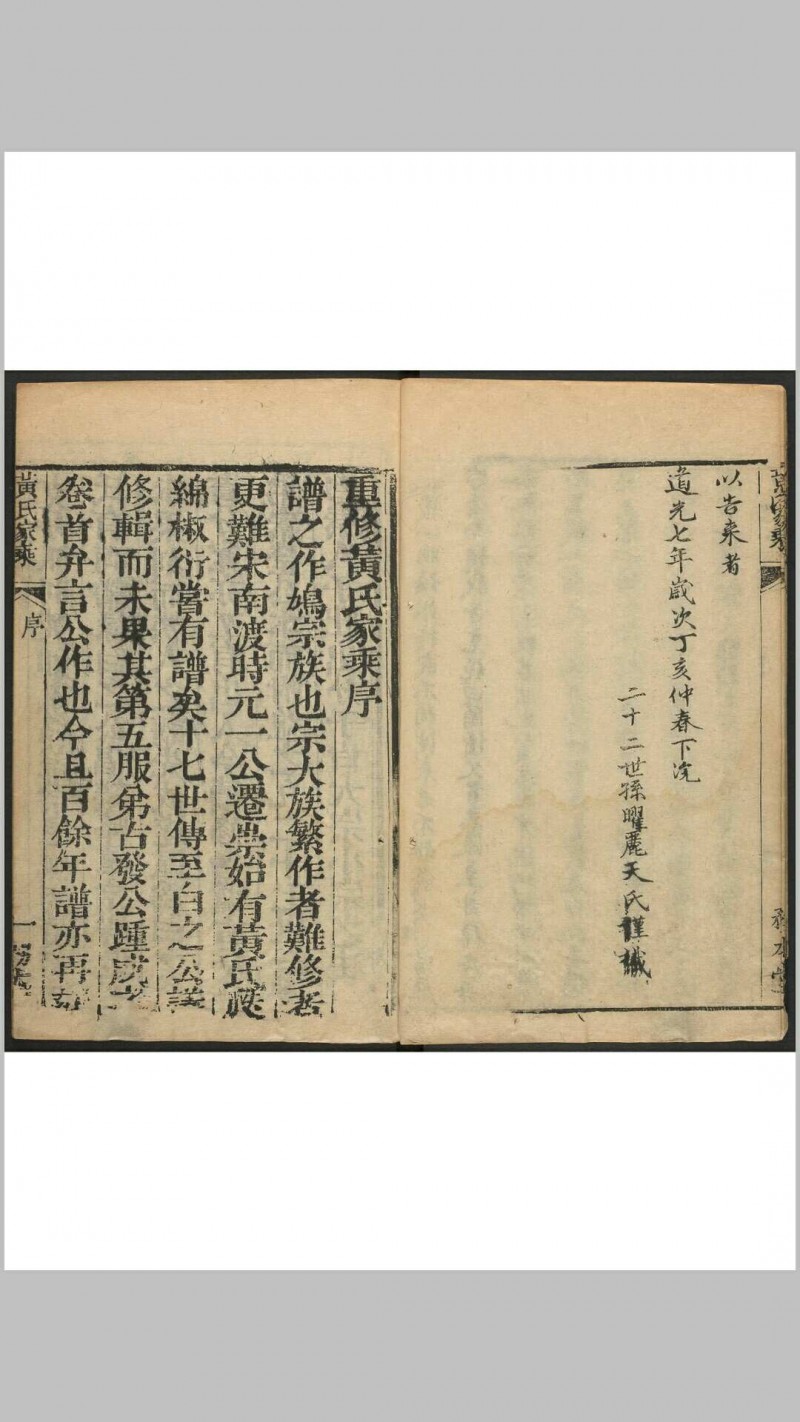 以告來者
道光七年歲次丁亥仲春下浣
二十二世孫曜麗天氏謹識
重修黃氏家乘序
譜之作鳩宗族也宗大族繁作者難修者
更難宋南渡時元一公遷崇始有黃氏瓞
綿椒衍嘗有譜矣十七世傳至白之公議
修輯而未果其第五服弟占發公踵成之
卷首弁言公作也今且百餘年譜亦再
黃氏家乘
序
一